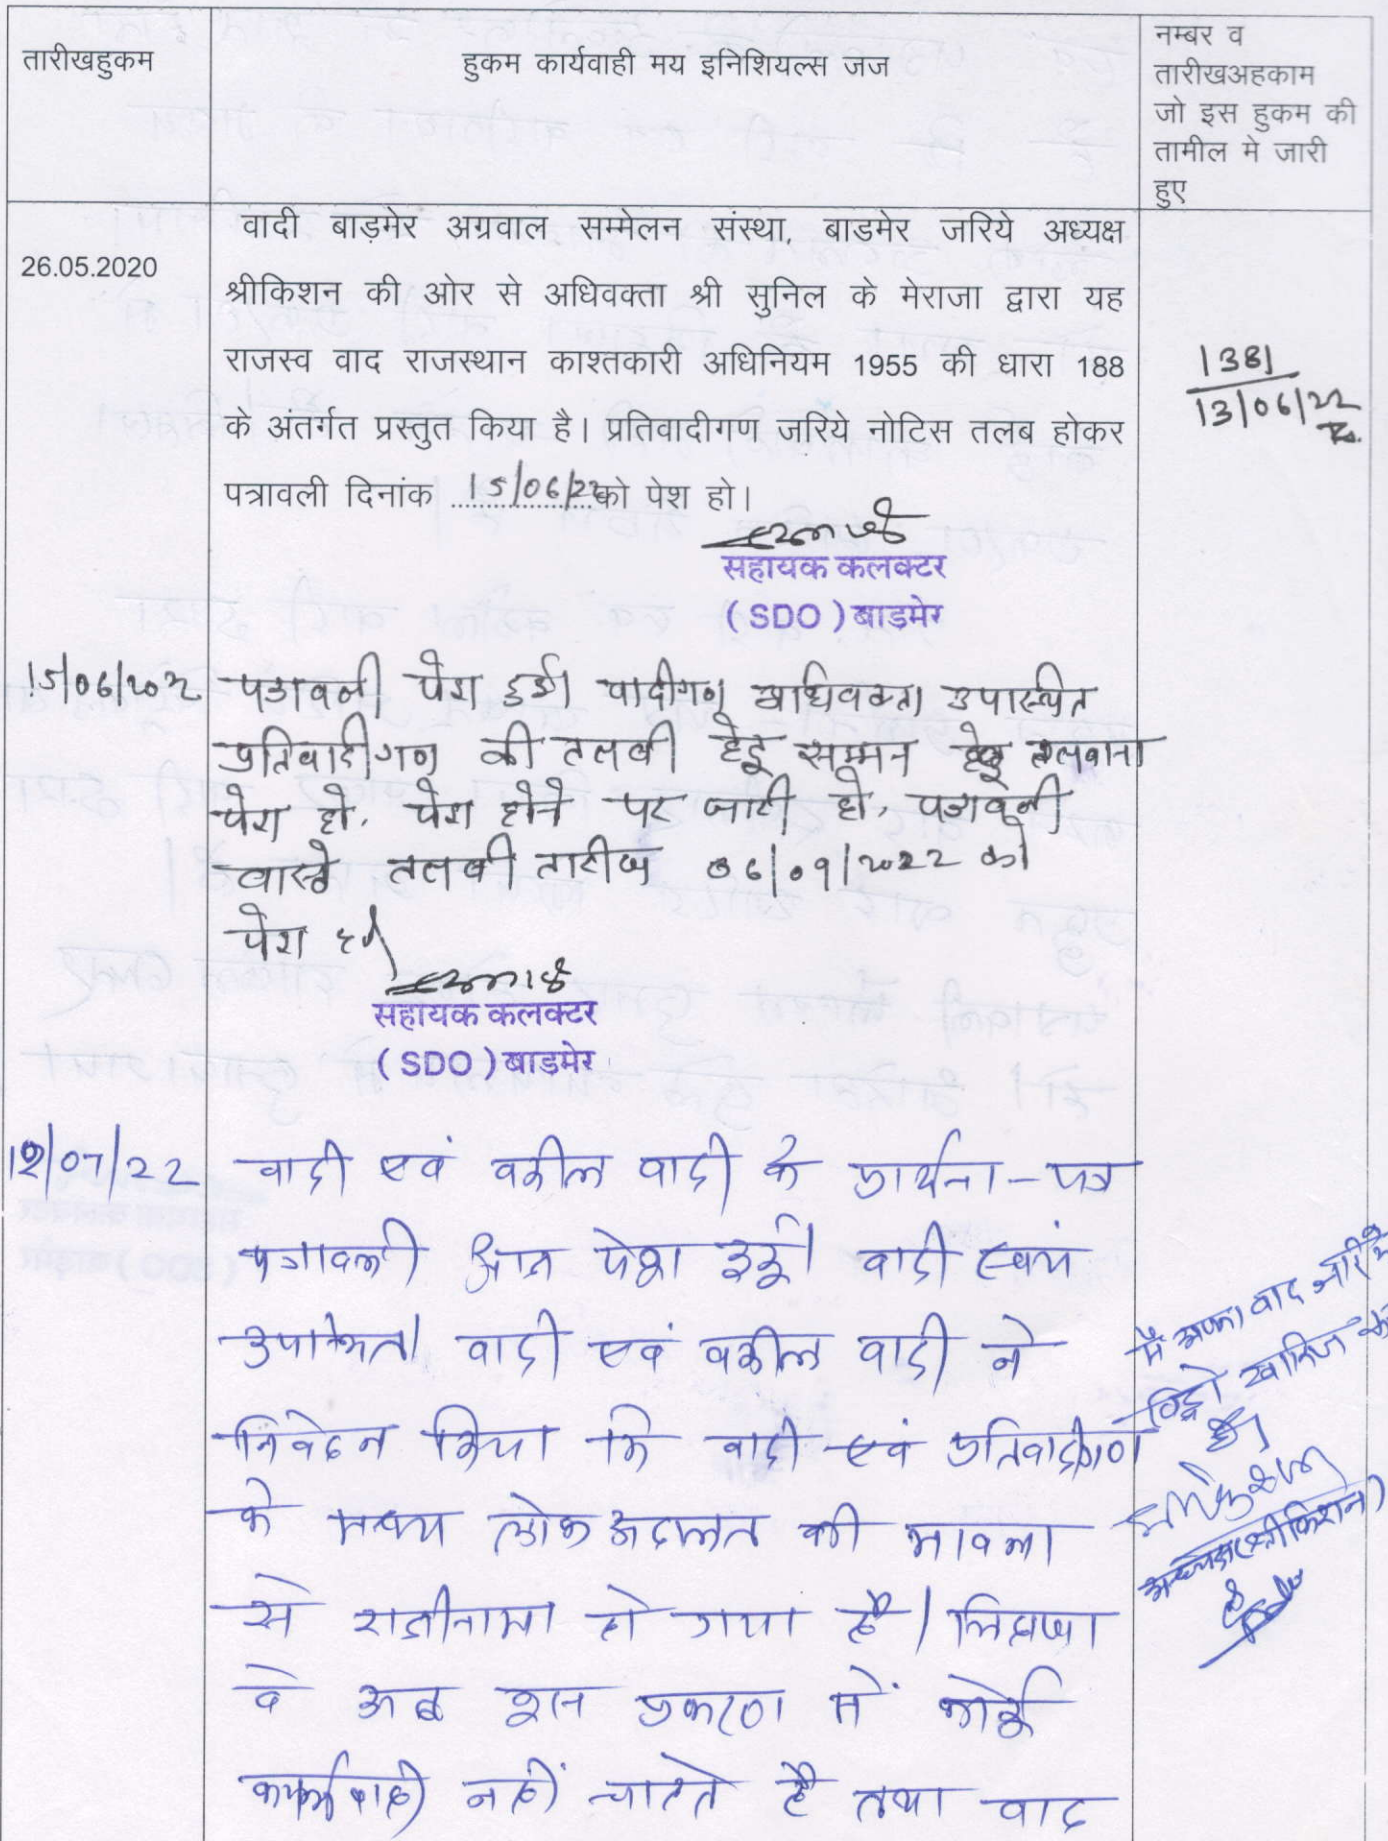 तारीखहुकम
हुकम कार्यवाही मय इनिशियल्स जज
नम्बर व
तारीखअहकाम
जो इस हुकम की
तामील मे जारी
हुए
26.05.2020
वादी बाड़मेर अग्रवाल सम्मेलन संस्था, बाडमेर जरिये अध्यक्ष
श्रीकिशन की ओर से अधिवक्ता श्री सुनिल के मेराजा द्वारा यह
राजस्व वाद राजस्थान काश्तकारी अधिनियम 1955 की धारा 188
के अंतर्गत प्रस्तुत किया है। प्रतिवादीगण जरिये नोटिस तलब होकर
पत्रावली दिनांक 15/06/22 को पेश हो।
1381
13/06/22
सहायक कलक्टर
(SDO) बाडमेर
15/06/2022
पत्रावली पेश हुई। वादीगण अधिवक्ता उपास्थित
प्रतिवादीगण की तलबी हेतु सम्मन हेतु तलवाना
पेश हो, पेश होने पर जारी हो, पत्रावली
वास्ते तलबी तारीख 06/09/2022 को
पेश हो।
सहायक कलक्टर
(SDO) बाडमेर
12/07/22
वादी एवं वकील वादी के प्रार्थना-पत्र
पत्रावली आज पेश हुई। वादी स्वयं
उपस्थित। वादी एवं वकील वादी ने
निवेदन किया कि वादी एवं प्रतिवादीगण
के मध्य लोक अदालत की भावना
से राजीनामा हो गया है। लिहाजा
वे अब इस प्रकरण में कोई
कार्यवाही नहीं चाहते है तथा वाद
मैं अपना वाद जरिये
विड्रो खारिज
हूँ।
श्रीकिशन
अध्यक्ष (श्रीकिशन)